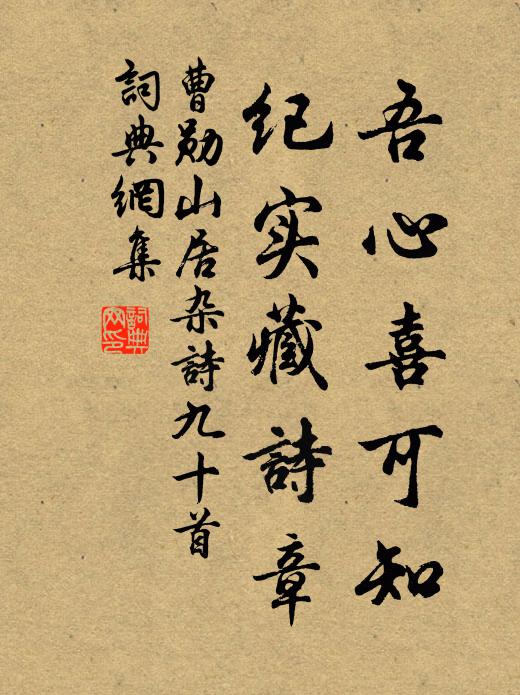 吾心喜可知
纪实藏詩章
曹勋山居杂詩九十首
詞典網集
詞典网印